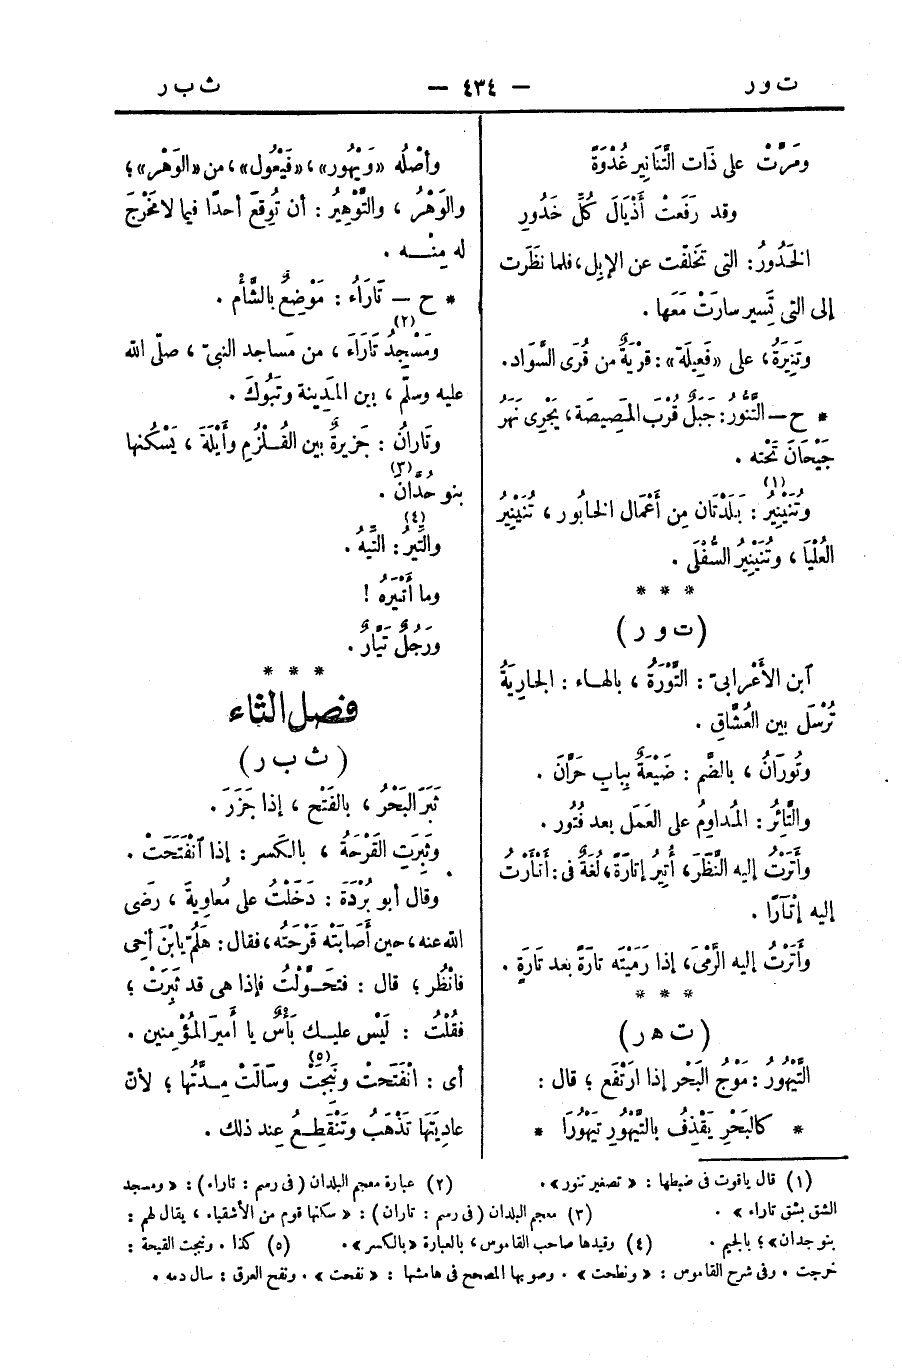 ت و ر — ٤٣٤ — ث ب ر
ومَرَّتْ على ذَات التَّنَانِير غُدْوَةً
وقد رَفَعَتْ أَذْيَالَ كُلِّ خَدُورِ
الخَدُورُ: التى تخَلفَت عن الإبِل، فلما نظَرَت
إلى التى تَسِير سارَتْ مَعَها .
وتَنِيرَةُ، على «فَعِيلَة»: قرْيَةٌ من قُرَى السَّوَاد.
* ح — التَّنُّورُ: جَبَلٌ قُرْبَ المَصِيصَة، يَجْرِى نَهَرُ
جَيْحَانَ تَحْتَه .
(١)
وتُنَيْنِيرُ : بَلْدَتَان مِن أَعْمَال الخابُور ، تُنَيْنِيرُ
العُلْيَا ، وتُنَيْنِيرُ السُّفْلَى .
* * *
(ت و ر)
آبن الأَعْرابىّ : التَّوْرَةُ ، بالهـاء : الجارِيَةُ
تُرْسَل بين العُشَّاقِ .
وتُورَانُ ، بالضَّم : ضَيْعَةٌ بِبابِ حَرَّانَ .
والتَّائِرُ : المُداوِمُ على العَمَل بعد فُتُور .
وأَتَرْتُ إليه النَّظَرَ، أُتِيرُ إتارَةً، لُغَةٌ فى : أَتْأَرْتُ
إليه إتْـآرًا .
وأَتَرْتُ إليه الرَّمْىَ، إذا رَمَيْتَه تارَةً بعد تارَةٍ .
* * *
(ت ه ر)
التَّيْهُورُ : مَوْجُ البَحْر إذا ارْتَفَع ؛ قال :
* كالبَحْرِ يَقْذِفُ بالتَّيْهُورِ تَيْهُورَا *
وأصْلُه «وَيْهُور»، «فَيْعُول»، من «الوَهْر» ؛
والوَهْرُ ، والتَّوْهِيرُ : أن تُوقِعَ أحدًا فيما لا مَخْرَجَ
له مِنْـــه .
* ح — تَارَاءُ : مَوْضِعٌ بالشَّأْم .
(٢)
ومَسْجِدُ تَارَاءَ ، من مَساجد النبىّ ، صلّى الله
عليه وسلّم ، بين المَدِينة وتَبُوكَ .
وتَارانُ : جَزِيرةٌ بين القُـلْزُمِ وأَيْلَةَ ، يَسْكُنها
(٣)
بنو حُدَّانَ .
(٤)
والتِّيرُ : التِّيهُ .
وما أَتْيَرَهُ !
ورَجُلٌ تَيَّارٌ .
* * *
فصل الثاء
(ث ب ر)
ثَبَرَ البَحْرُ ، بالفَتْح ، إذا جَزَرَ .
وثَبِرَتِ القَرْحَةُ ، بالكَسر : إذا آنْفَتَحَتْ .
وقال أبو بُرْدَةَ : دَخَلْتُ على مُعاوِيةَ ، رَضَى
الله عنه، حين أَصَابَتْه قَرْحَتُه، فقال: هَلُمّ يابْنَ أخِى
فانْظُر ؛ قال : فتحَـوَّلْتُ فإذا هى قد ثَبِرَتْ ؛
فقُلْتُ : لَيْس عليـك بَأْسٌ يا أَمِيرَ المُؤْمِنين .
(٥)
أى : انْفَتَحتْ ونَبَجَتْ وسَالَتْ مِـدَّتُها ؛ لأنّ
عادِيَتَها تَذْهَبُ وتَنْقَطِـعُ عِند ذلك .
(١) قال ياقوت فى ضبطها : « تصغير تنور ».
(٢) عبارة معجم البلدان (فى رسم : تاراء) : « ومسجد
الشق بشق تاراء » .
(٣) معجم البلدان (فى رسم : تاران) : « سكنها قوم من الأشقياء ، يقال لهم :
بنو جدان »؛ بالجيم .
(٤) وقيدها صاحب القاموس، بالعبارة «بالكسر ».
(٥) كذا . ونبجت القيحة :
خرجت . وفى شرح القاموس : « ونطحت » . وصوبها المصحح فى هامشها : « نفحت » . ونفح العرق : سال دمه .